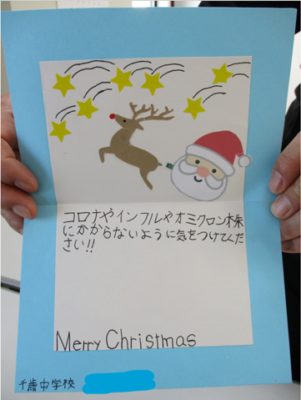 コロナやインフルやオミクロン株
にかからないように気をつけてくだ
さい!!
Merry Christmas
千歳中学校